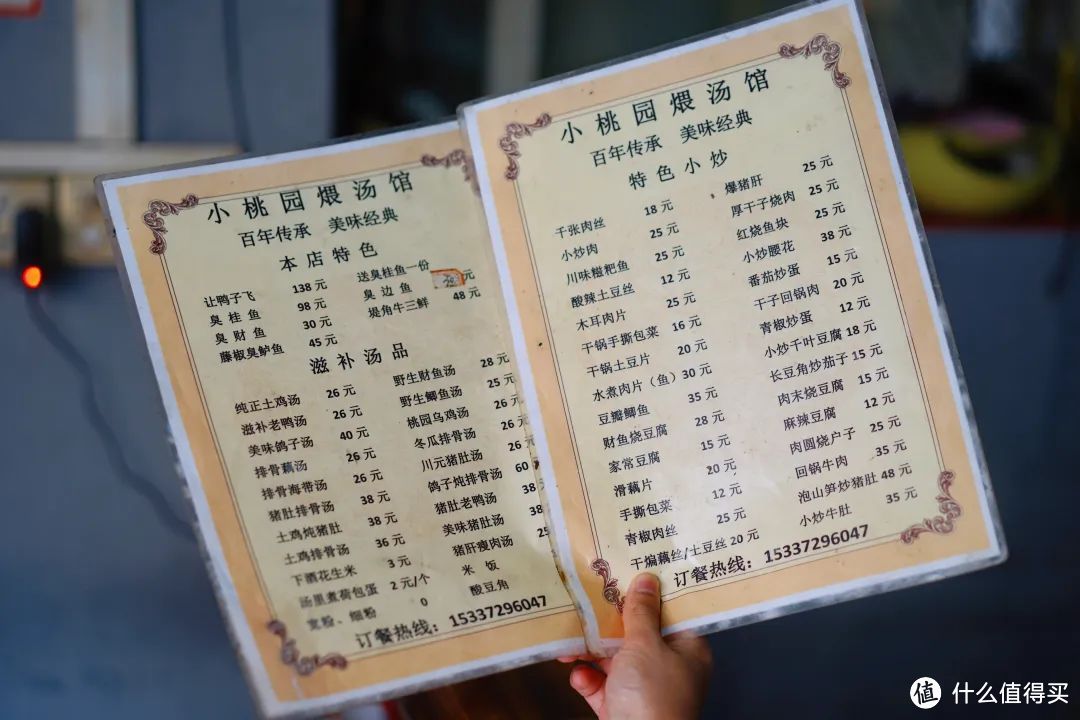 小桃园煨汤馆
百年传承 美味经典
本店特色
让鸭子飞 138 元 送臭桂鱼一份
臭桂鱼 98 元 臭边鱼 元
臭财鱼 30 元 堤角牛三鲜 48 元
藤椒臭鲈鱼 45 元
滋补汤品
纯正土鸡汤 26 元 野生财鱼汤 28 元
滋补老鸭汤 26 元 野生鲫鱼汤 25 元
美味鸽子汤 40 元 桃园乌鸡汤 26 元
排骨藕汤 26 元 冬瓜排骨汤 26 元
排骨海带汤 26 元 川元猪肚汤 26
猪肚排骨汤 38 元 鸽子炖排骨汤 60
土鸡炖猪肚 38 元 猪肚老鸭汤 38
土鸡排骨汤 36 元 美味猪肚汤 38
下酒花生米 3 元 猪肝瘦肉汤 25
汤里煮荷包蛋 2 元/个 米饭
宽粉、细粉 0 酸豆角
订餐热线：15337296047
小桃园煨汤馆
百年传承 美味经典
特色小炒
千张肉丝 18 元 爆猪肝 25 元
小炒肉 25 元 厚干子烧肉 25 元
川味糍粑鱼 25 元 红烧鱼块 25 元
酸辣土豆丝 12 元 小炒腰花 38 元
木耳肉片 25 元 番茄炒蛋 15 元
干锅手撕包菜 16 元 干子回锅肉 20 元
干锅土豆片 20 元 青椒炒蛋 12 元
水煮肉片（鱼）30 元 小炒千叶豆腐 18 元
豆瓣鲫鱼 35 元 长豆角炒茄子 15 元
财鱼烧豆腐 28 元 肉末烧豆腐 15 元
家常豆腐 15 元 麻辣豆腐 12 元
滑藕片 20 元 肉圆烧户子 25 元
手撕包菜 12 元 回锅牛肉 35 元
青椒肉丝 25 元 泡山笋炒猪肚 48 元
干煸藕丝/土豆丝 20 元 小炒牛肚 35 元
订餐热线：15337296047
值 什么值得买